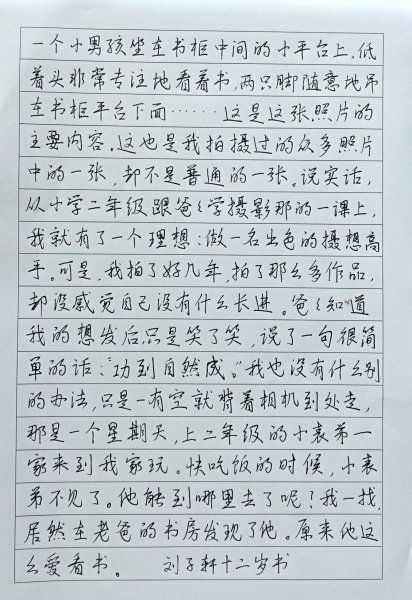 一个小男孩坐在书柜中间的小平台上,低
着头非常专注地看着书,两只脚随意地吊
在书柜平台下面……这是这张照片的
主要内容。这也是我拍摄过的众多照片
中的一张,却不是普通的一张。说实话,
从小学二年级跟爸々学摄影那的一课上,
我就有了一个理想:做一名出色的摄想高
手。可是我拍了好几年,拍了那么多作品,
却没感觉自己没有什么长进。爸々知道
我的想发后只是笑了笑,说了一句很简
单的话:“功到自然成。”我也没有什么别
的办法,只是一有空就背着相机到处走,
那是一个星期天,上二年级的小表弟一
家来到我家玩。快吃饭的时候,小表
弟不见了。他能到哪里去了呢?我一找,
居然在老爸的书房发现了他。原来他这
么爱看书。 刘子轩十二岁书